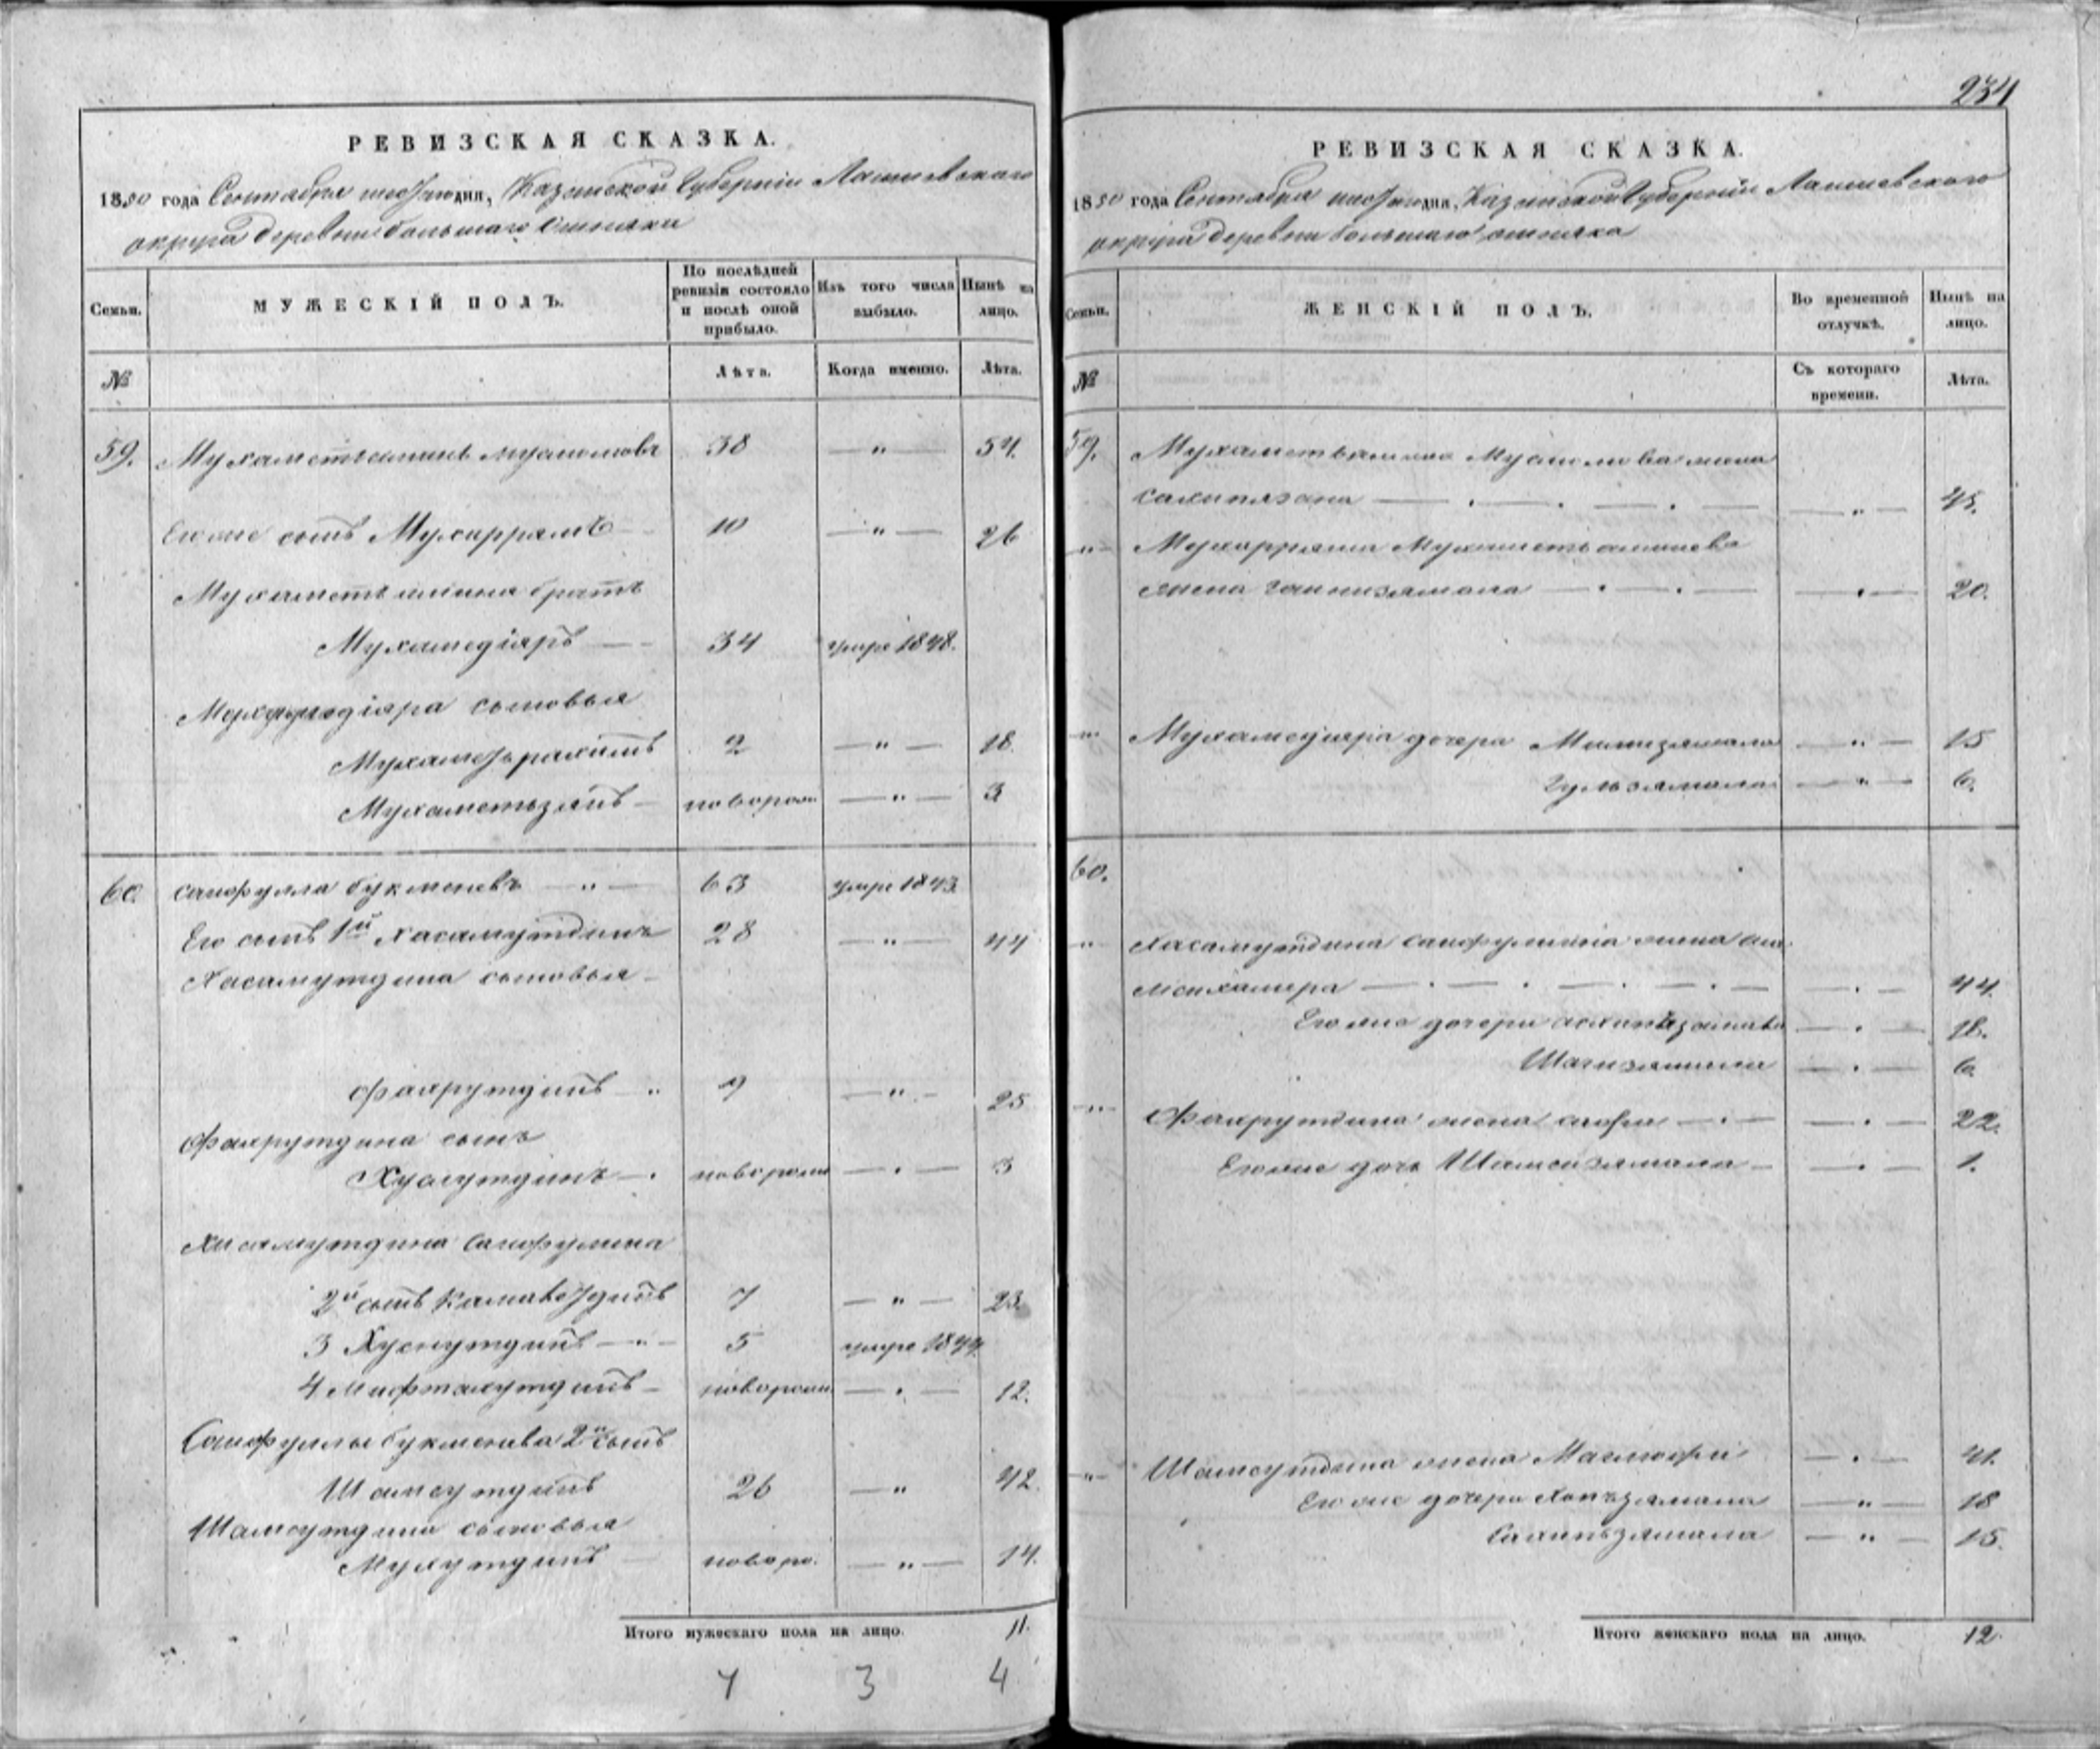 234
РЕВИЗСКАЯ СКАЗКА.
1850 года Сентября дня, Казанской Губерніи Лаишевскаго
округа деревни большаго
Семьи.
МУЖЕСКІЙ ПОЛЪ.
По послѣдней ревизіи состояло и послѣ оной прибыло.
Изъ того числа выбыло.
Нынѣ на лицо.
№
Лѣта.
Когда именно.
Лѣта.
59. Мухаметьаминь Муслюмовъ 38 — " — 54.
Его же сынъ Мухаррямъ 10 — " — 26
Мухаметьамина братъ
Мухамедіяръ — 34 умре 1848.
Мухамедіяра сыновья
Мухаметьрахимъ 2 — " — 18.
Мухаметьзянъ — новорож — " — 3
60. Сайфулла букменевъ — " — 63 умре 1843
Его сынъ 1й Хасамутдинъ 28 — " — 44
Хасамутдина сыновья —
Фахрутдинъ — " 9 — " — 25
Фахрутдина сынъ
Хусутдинъ — . новорож — . — 3
Хисамутдина Сайфулина
2й сынъ 7 — " — 23.
3 Хуснутдинъ — " — 5 умре 1844.
4 Мифтахутдинъ — новорож — . — 12.
Сайфуллы букменева 2й сынъ
Шамсутдинъ 26 — " 42.
Шамсутдина сыновья
Мухутдинъ — новоро. — " — 14.
Итого мужескаго пола на лицо. 11.
4 3 4
РЕВИЗСКАЯ СКАЗКА.
1850 года Сентября дня, Казанской Губерніи Лаишевскаго
округа деревни большаго
Семьи.
ЖЕНСКІЙ ПОЛЪ.
Во временной отлучкѣ.
Нынѣ на лицо.
№
Съ котораго времени.
Лѣта.
59. Мухаметьамина Муслюмова жена
— . — . — . — — " — 45.
" Мухарряма Мухаметьаминева
жена — . — . — — . — 20.
" Мухамедіяра дочери — " — 15
Гульзямала — " — 6.
60.
" Хасамутдина Сайфулина жена
— . — . — . — . — — . — 44.
Его же дочери — . — 18.
Шагизямала — . — 6
" Фахрутдина жена — . — — . — 22.
Его же дочь Шамсизямала — — . — 1.
" Шамсутдина жена — . — 41.
Его же дочери — " — 18
Салипьзямала — " — 15.
Итого женскаго пола на лицо. 12.